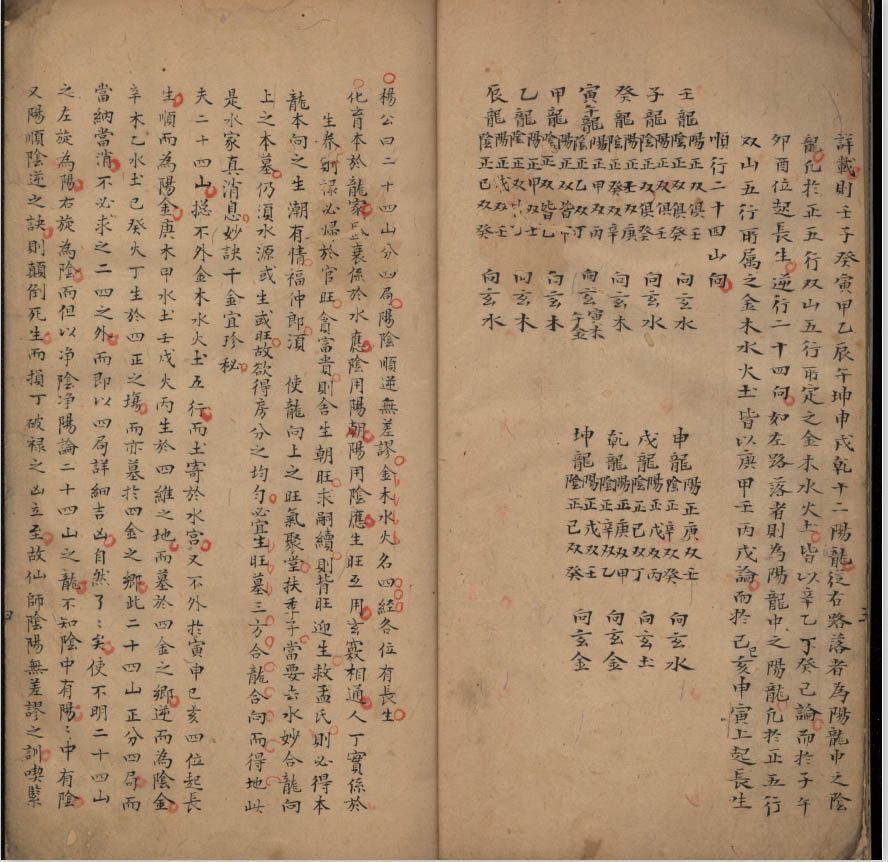 詳載則壬子癸寅甲乙辰午坤申戌乾十二陽龍從右路落者為陽龍中之陰
龍凢於正五行双山五行所定之金木水火土皆以辛乙丁癸己論而於子午
卯酉位起長生逆行二十四向如左路落者則為陽龍中之陽龍凢於正五行
双山五行所属之金木水火土皆以庚甲壬丙戊論而於己亥申寅上起長生
順行二十四山向
壬龍 陽正双俱壬 陰正双俱癸 向玄水
子龍 陽正双俱壬 陰正双俱癸 向玄水
癸龍 陽正壬双庚 陰正癸双辛 向玄木
寅午龍 陽正甲双丙 陰正乙双丁 向玄寅木午金
甲龍 陽正双皆甲 陰正双皆乙 向玄木
乙龍 陽正甲双壬 陰正乙双 向玄木
辰龍 陽正戊双壬 陰正己双癸 向玄水
申龍 陽正庚双壬 陰正辛双癸 向玄水
戌龍 陽正戊双丙 陰正己双丁 向玄土
乾龍 陽正庚双甲 陰正辛双乙 向玄金
坤龍 陽正戊双壬 陰正己双癸 向玄金
楊公曰二十四山分四局陽陰順逆無差謬金木水火名四經各位有長生
化育本於龍家衰係於水應陰用陽朝陽用陰應生旺互用玄竅相通人丁實係於
生養則祿必㷼於官旺貪富貴則舍生朝旺求嗣續則背旺迎生救孟氏則必得本
龍本向之生潮有情福仲郎須使龍向上之旺氣聚堂扶季子當要去水妙合龍向
上之本墓仍須水源或生或旺故欲得房分之均勻必宜生旺墓三方合龍合向而得地此
是水家真消息妙訣千金宜珍秘
夫二十四山捴不外金木水火土五行而土寄於水宮又不外於寅申巳亥四位起長
生順而為陽金庚木甲水土壬戊火丙生於四維之地而墓於四金之鄉逆而為陰金
辛木乙水土己癸火丁生於四正之塲而亦墓於四金之鄉此二十四山正分四局而
當納當消不必求之二四之外而即以四局詳細吉凶自然了〻矣使不明二十四山
之左旋為陽右旋為陰而但以净陰净陽論二十四山之龍不知陰中有陽〻中有陰
又陽順陰逆之訣則顛倒死生而損丁破禄之凶立至故仙師陰陽無差謬之訓喫緊